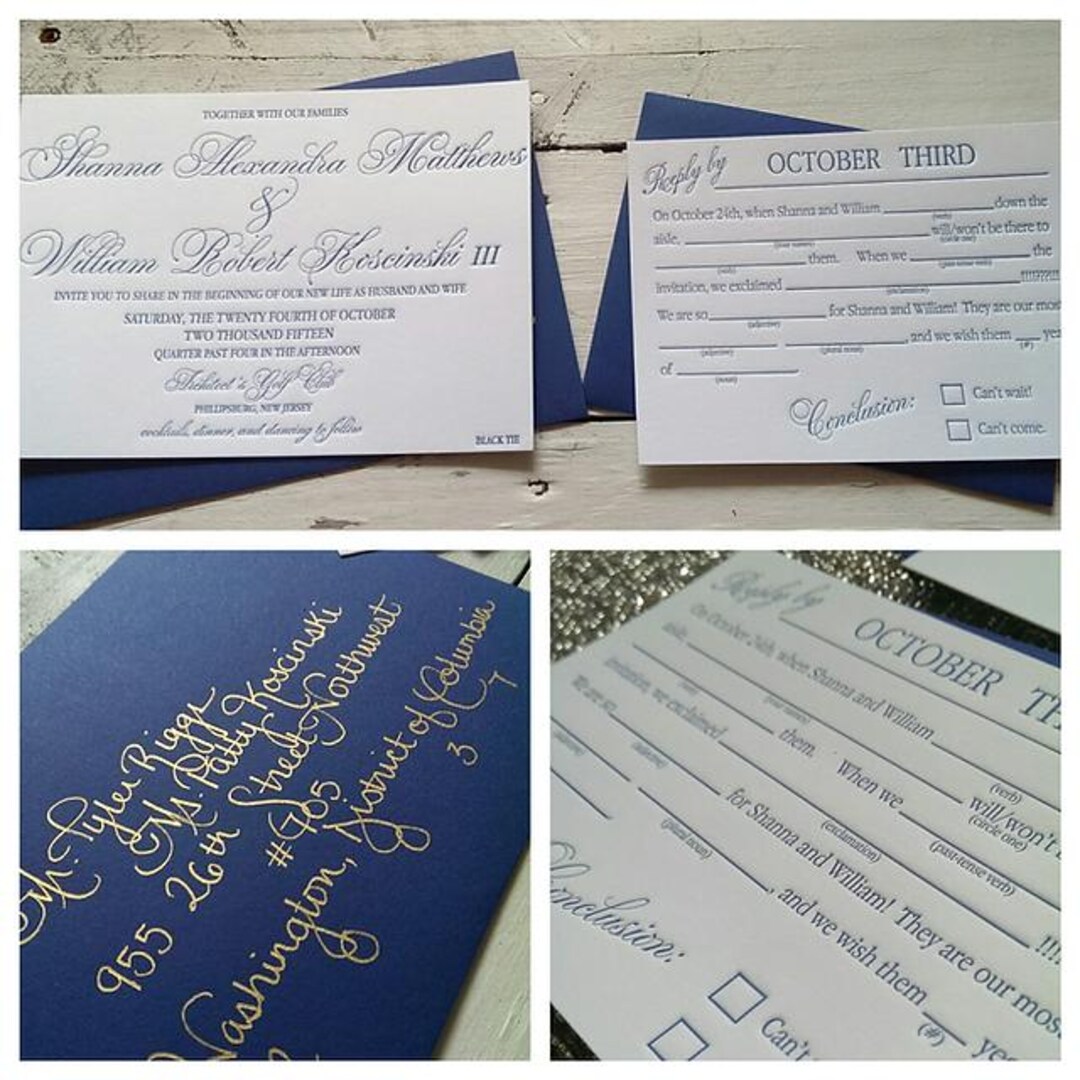 TOGETHER WITH OUR FAMILIES
Shanna Alexandra Matthews
&
William Robert Koscinski III
INVITE YOU TO SHARE IN THE BEGINNING OF OUR NEW LIFE AS HUSBAND AND WIFE
SATURDAY, THE TWENTY FOURTH OF OCTOBER
TWO THOUSAND FIFTEEN
QUARTER PAST FOUR IN THE AFTERNOON
Architect's Golf Club
PHILLIPSBURG, NEW JERSEY
cocktails, dinner, and dancing to follow
BLACK TIE
Reply by OCTOBER THIRD
On October 24th, when Shanna and William down the
(verb)
aisle, will/won't be there to
(your names) (circle one)
them. When we the
(verb) (past-tense verb)
invitation, we exclaimed !!!!????!!
(exclamation)
We are so for Shanna and William! They are our most
(adjective)
, and we wish them yea
(adjective) (plural noun) (#)
of
(noun)
Conclusion: Can't wait!
Can't come.
Mr. Tyler Riggs
Ms. Patty Koscinski
955 26th Street Northwest
#G05
Washington, District of Columbia
3 7
Reply by OCTOBER TH
On October 24th, when Shanna and William
(verb)
aisle, will/won't
(your names) (circle one)
them. When we
(verb) (past-tense verb)
invitation, we exclaimed !!!!
(exclamation)
We are so for Shanna and William! They are our mos
(adjective)
, and we wish them ye
(adjective) (plural noun) (#)
Conclusion: Can't